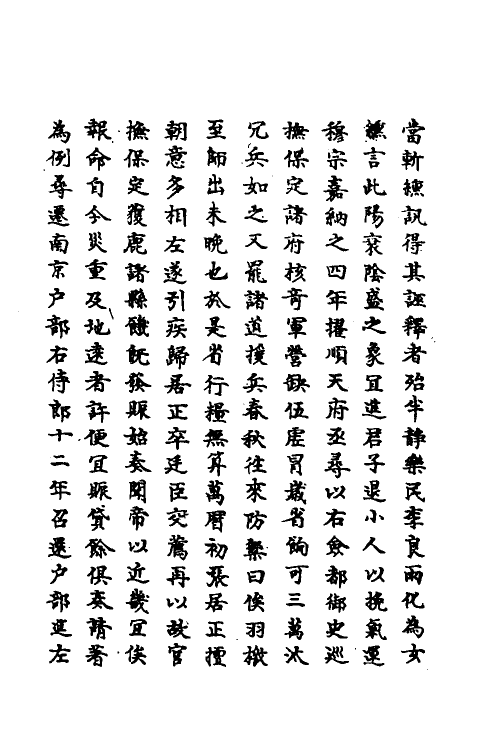 當斬纁訊得其誣釋者殆半静樂民李良雨化為女
纁言此陽衰陰盛之象宜進君子退小人以挽氣運
穆宗嘉納之四年擢順天府丞尋以右僉都御史巡
撫保定諸府核竒軍營缺伍虛冒歲省餉可三萬汰
冗兵如之又罷諸道援兵春秋往來防禦曰俟羽檄
至師出未晚也於是省行糧無算萬曆初張居正擅
朝意多相左遂引疾歸居正卒廷臣交薦再以故官
撫保定獲鹿諸縣饑旣發賑始奏聞帝以近畿宜俟
報命自今災重及地遠者許便宜賑貸餘俱奏請著
為例尋遷南京户部右侍郎十二年召還户部進左